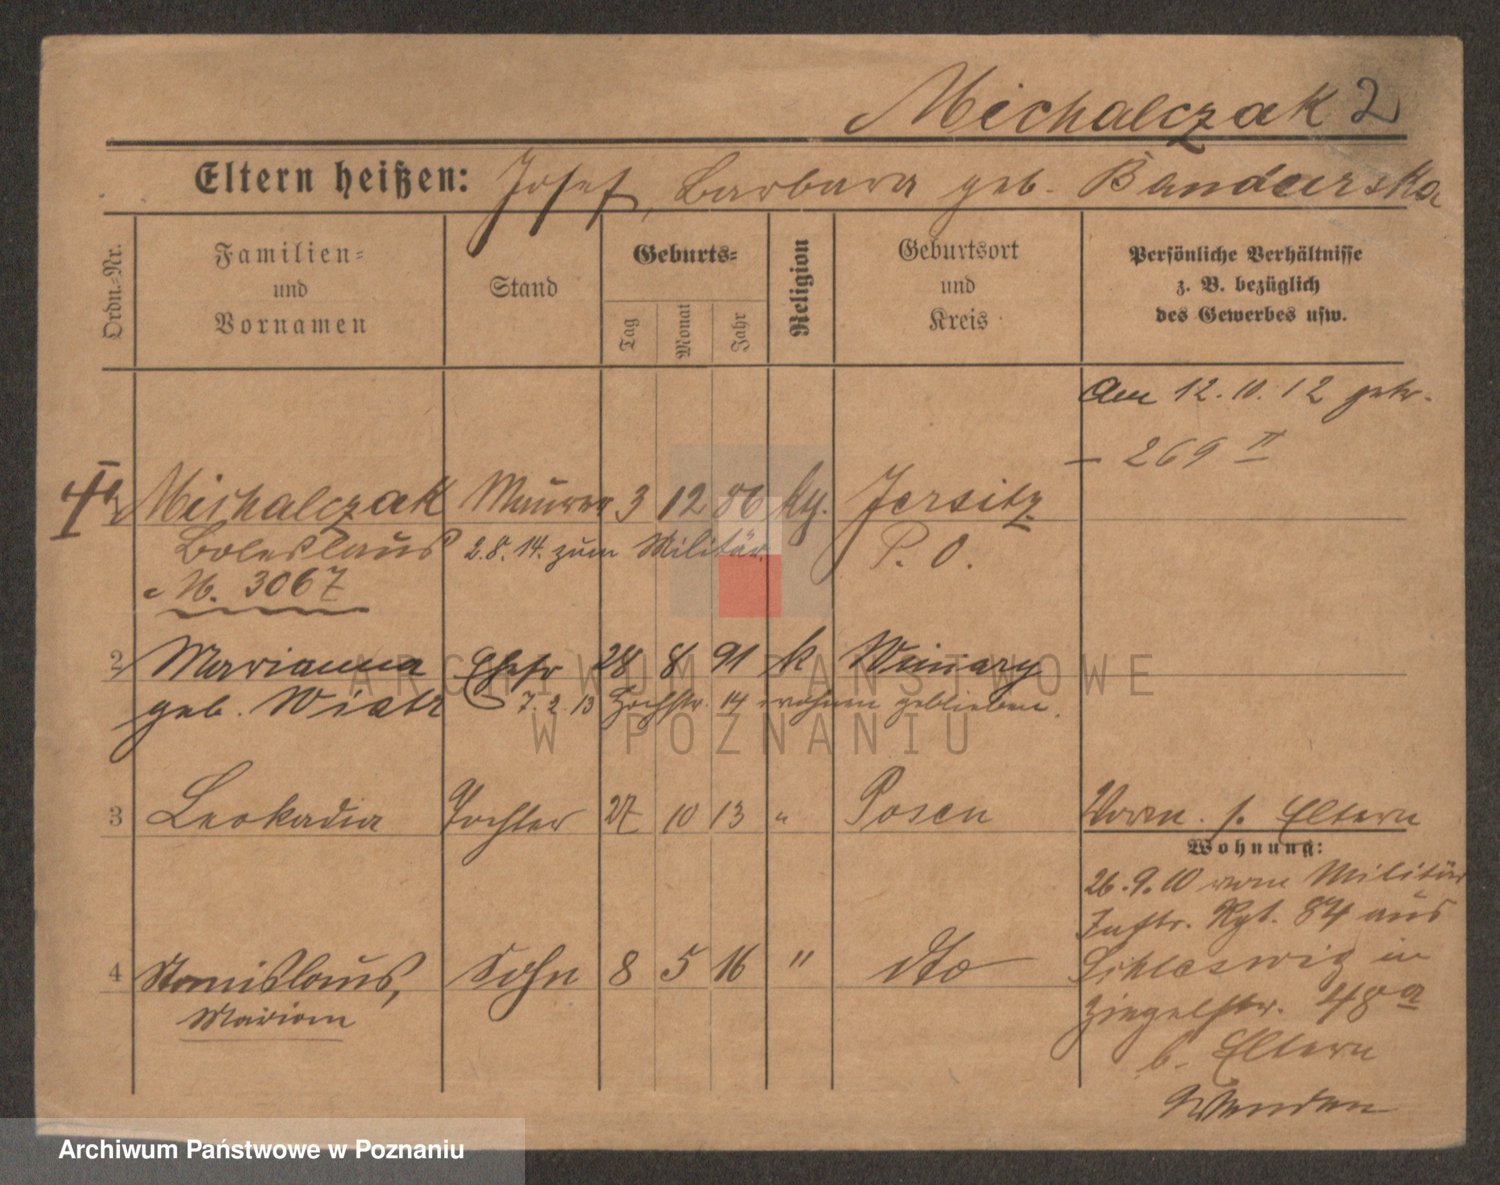 Michalczak 2
Eltern heißen: Josef, Barbara geb. Bandurska
Ordn.-Nr.
Familien-
und
Vornamen
Stand
Geburts-
Tag
Monat
Jahr
Religion
Geburtsort
und
Kreis
Persönliche Verhältnisse
z. B. bezüglich
des Gewerbes usw.
Am 12.10.12 getr.
269 II
Michalczak Maurer 3 12 86 kth. Jersitz
Boleslaus 2.8.14. zum Militär. P. O.
N. 3067
2 Marianna Ehefr 28 8 91 k Winiary
geb. Wiatr 7.2.13 Hochstr. 14 wohnen geblieben.
3 Leokadia Tochter 27 10 13 " Posen Vorm. s. Eltern
Wohnung:
26.9.10 vom Militär
Inftr. Rgt. 84 aus
Schleswig in
Ziegelstr. 48a
b. Eltern
4 Stanislaus, Sohn 8 5 16 " dto
Mariam
ARCHIWUM PAŃSTWOWE
W POZNANIU
Archiwum Państwowe w Poznaniu